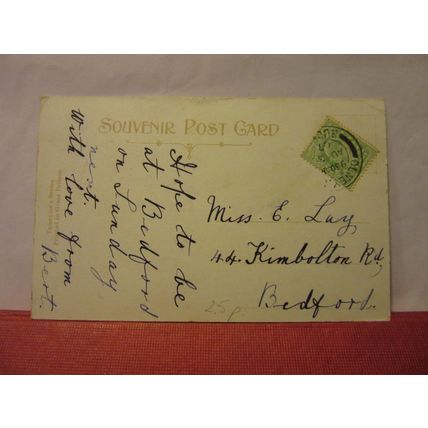 SOUVENIR POST CARD
Hope to be
at Bedford
on Sunday
next
With love from
Bert.
Miss. E. Lay
44 Kimbolton Rd,
Bedford.
25p